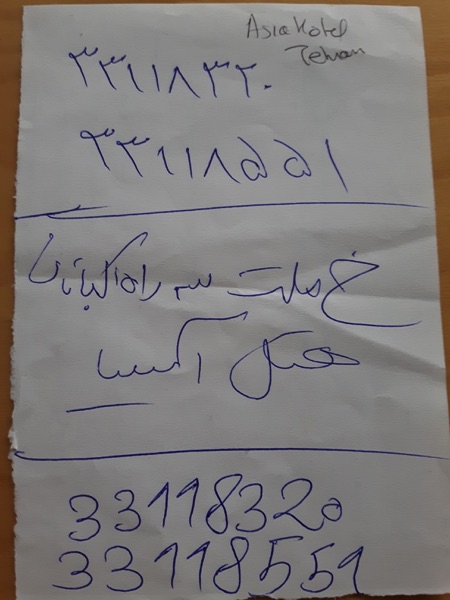 Asia Hotel
Tehran
۳۳۱۱۸۳۲۰
۳۳۱۱۸۵۵۱
خ ملت سه راه اکباتان
هتل آسیا
33118320
33118551